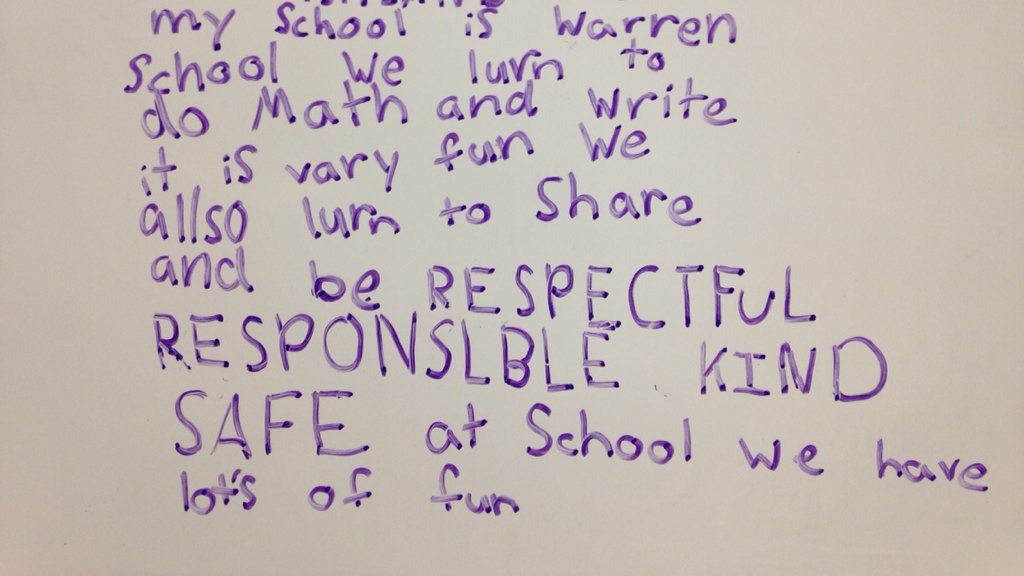 my School is Warren
School We lurn to
do Math and Write
it is vary fun We
allso lurn to Share
and be RESPECTFuL
RESPONSLBLE KIND
SAFE at School we have
lot's of fun